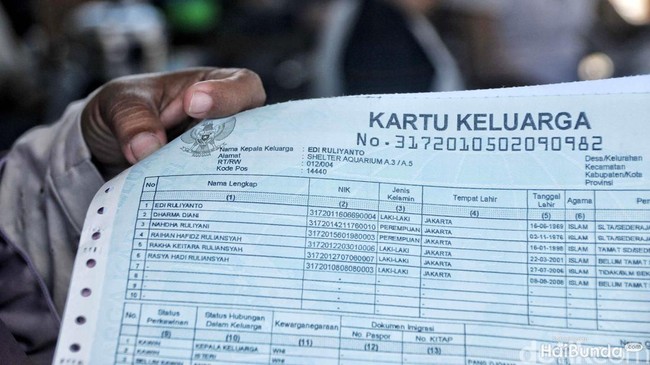 KARTU KELUARGA
No. 3172010502090982
Nama Kepala Keluarga : EDI RULIYANTO
Alamat : SHELTER AQUARIUM A.3 / A.5
RT/RW : 012/004
Kode Pos : 14440
Desa/Kelurahan
Kecamatan
Kabupaten/Kota
Provinsi
No Nama Lengkap NIK Jenis Kelamin Tempat Lahir Tanggal Lahir Agama
(1) (2) (3) (4) (5) (6)
1 EDI RULIYANTO 3172011606690004 LAKI-LAKI JAKARTA 16-06-1969 ISLAM
2 DHARMA DIANI 3172014211760010 PEREMPUAN JAKARTA ISLAM
3 NAHDHA RULIYANI 3172015601980003 PEREMPUAN JAKARTA 16-01-1998 ISLAM
4 RAIHAN HAFIDZ RULIANSYAH 3172012203010006 LAKI-LAKI JAKARTA 22-03-2001 ISLAM
5 RAKHA KEITARA RULIANSYAH 3172012707060007 LAKI-LAKI JAKARTA 27-07-2006 ISLAM
6 RASYA HADI RULIANSYAH 3172010808080003 LAKI-LAKI JAKARTA ISLAM
7
8
9
10
No Status Perkawinan Status Hubungan Dalam Keluarga Kewarganegaraan Dokumen Imigrasi
No. Paspor No. KITAP
(10) (11) (12) (13)
1 KAWIN KEPALA KELUARGA WNI
HaiBunda.com